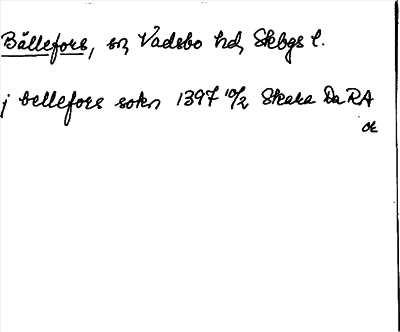 Bällefors, sn, Vadsbo hd, Skbgs l.
j bellefors sokn 1397 10/2 Skara Da RA
ok